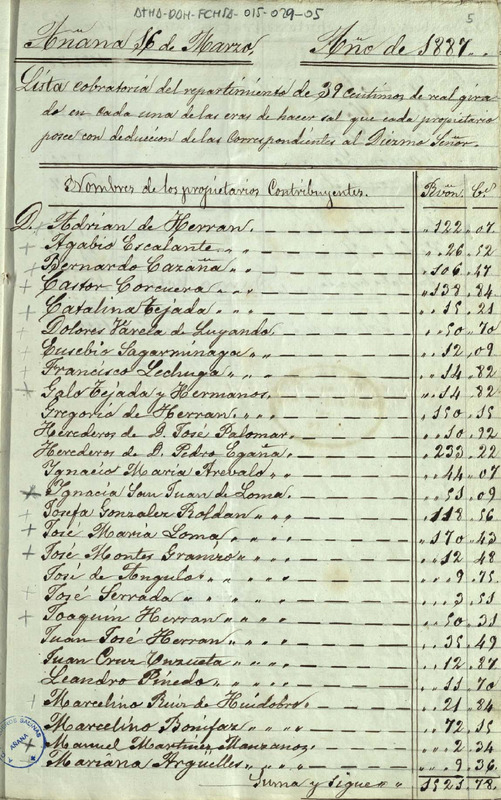 ATHA-DAH-FCHSA-015-029-05
5
Añana 16 de Marzo. Año de 1887..
Lista cobratoria del repartimiento de 39 centimos de real gira
do en cada una de las eras de hacer sal que cada propietario
posee con deduccion de las correspondientes al Diezmo Señor.
Nombres de los propietarios Contribuyentes. Rvon. Cs.
D. Adrian de Herran. 122 07
Agabio Escalante 26 52
Bernardo Cazaña 106 47
Castor Corcuera 138 84
Catalina Tejada 15 21
Dolores Varela de Luyando 50 70
Eusebio Sagarminaga 12 09
Francisco Lechuga 14 82
Galo Tejada y Hermanos. 14 82
Gregorio de Herran. 150 15
Herederos de D. José Palomar. 10 92
Herederos de D. Pedro Egaña. 233 22
Ygnacio Maria Arevalo 44 07
Ygnacia San Juan de Loma. 51 09
Josefa Gonzalez Roldan 118 56
José Maria Loma 170 43
José Montes Granizo 12 48
José de Angulo 9 75
José Serrada 3 51
Joaquin Herran 50 31
Juan José Herran 35 49
Juan Cruz Unzueta 12 87
Leandro Pinedo 11 70
Marcelino Ruiz de Huidobro. 21 84
Marcelino Bonifaz 72 15
Manuel Martinez Manzanos. 2 34
Mariana Arguelles 9 36
Suma y sigue 1525 78
AÑANA